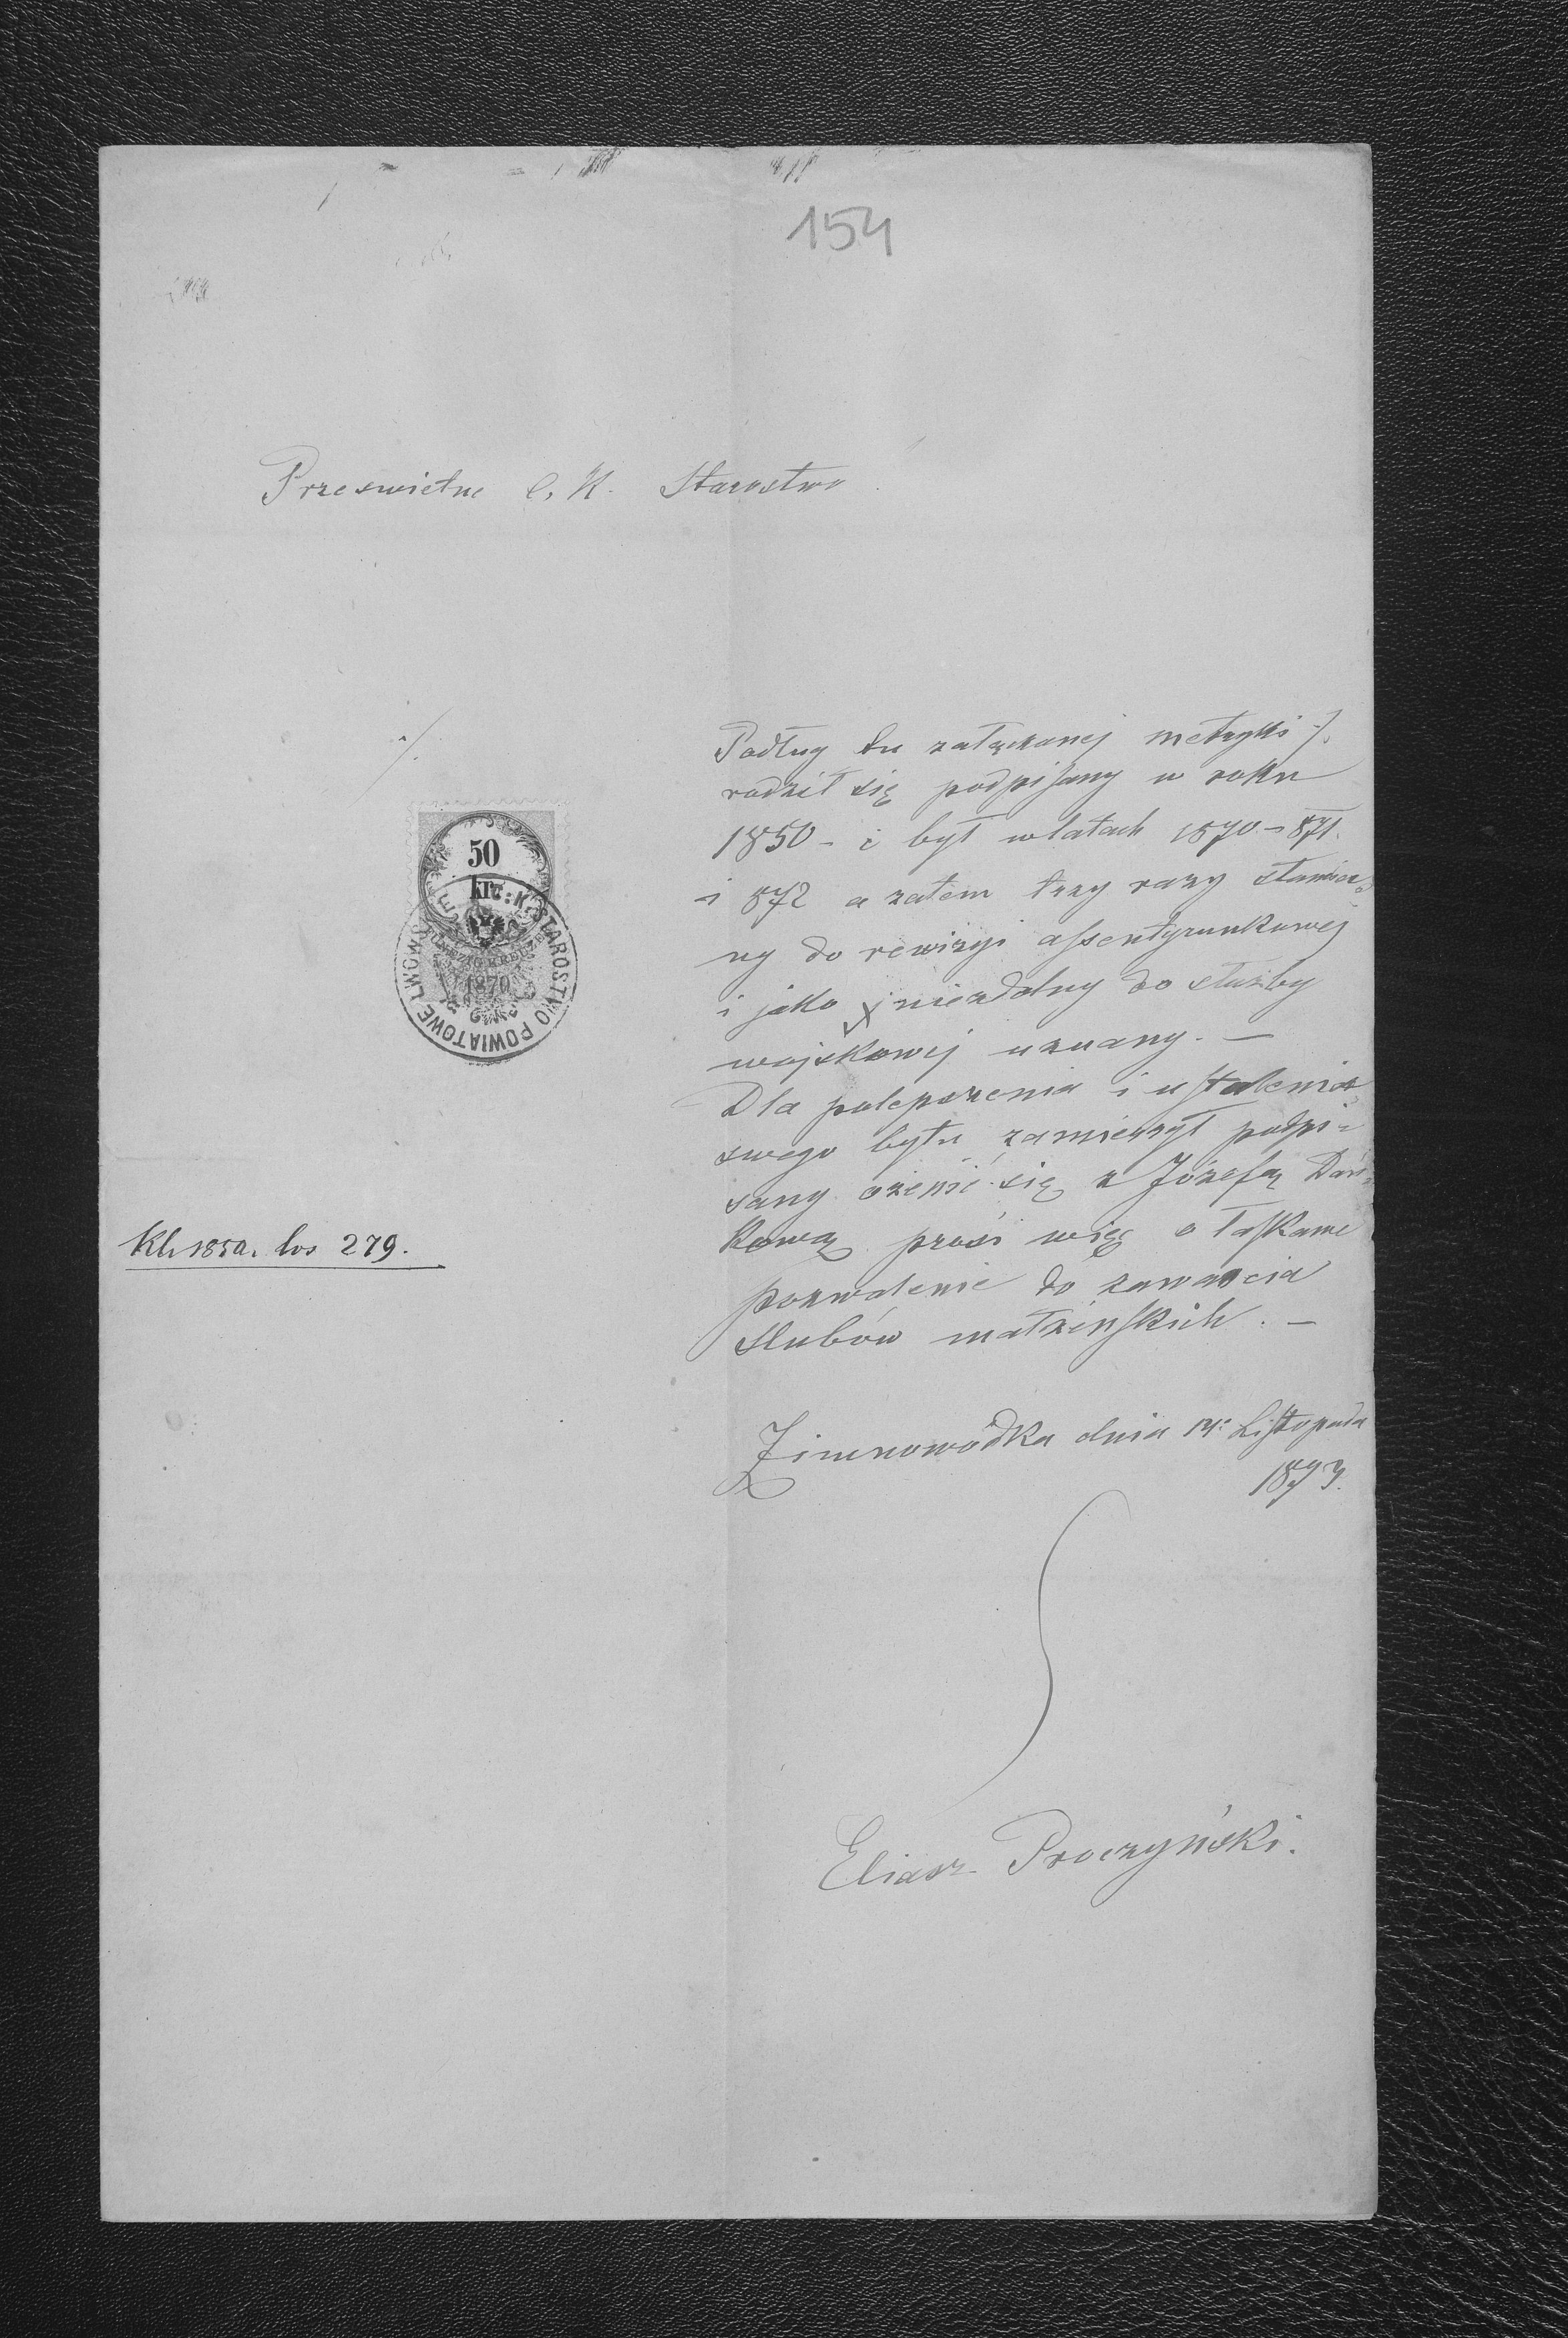 154
Przeswietne C. K. Starostwo
·/.
Podług tu załączonej metryki ·/.
rodził się podpisany w roku
1850 - i był w latach 1870 - 871.
i 872 a zatem trzy razy stawia-
ny do rewizyi assentyrunkowej
i jako niezdolny do służby
wojskowej uznany. —
Dla polepszenia i ustalenia
swego bytu zamierzył podpi-
sany ożenić się z Józefą Dań-
kową prosi więc o łaskawe
pozwolenie do zawarcia
slubów małżeńskich. —
50
kr.
C: K: STAROSTWO POWIATOWE LWOWSKIE
1870
Kl. 1850. los 279.
Zimnowódka dnia 14: Listopada
1873.
Eliasz Proczyński.